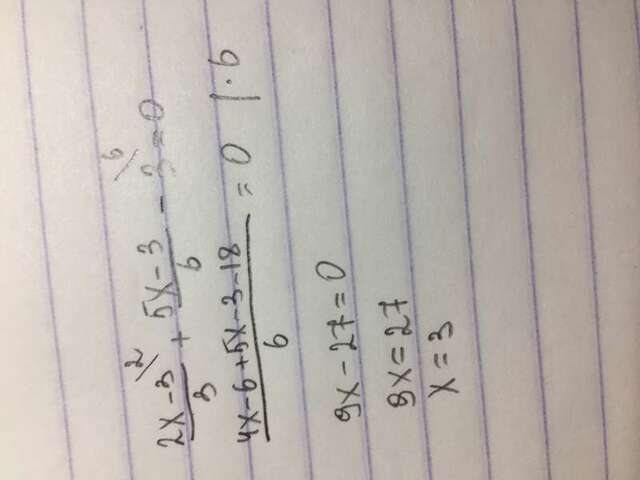 (2x-3)/3 \2 + (5x-3)/6 - 3 \6 = 0
(4x-6+5x-3-18)/6 = 0 |·6
9x-27=0
9x=27
x=3